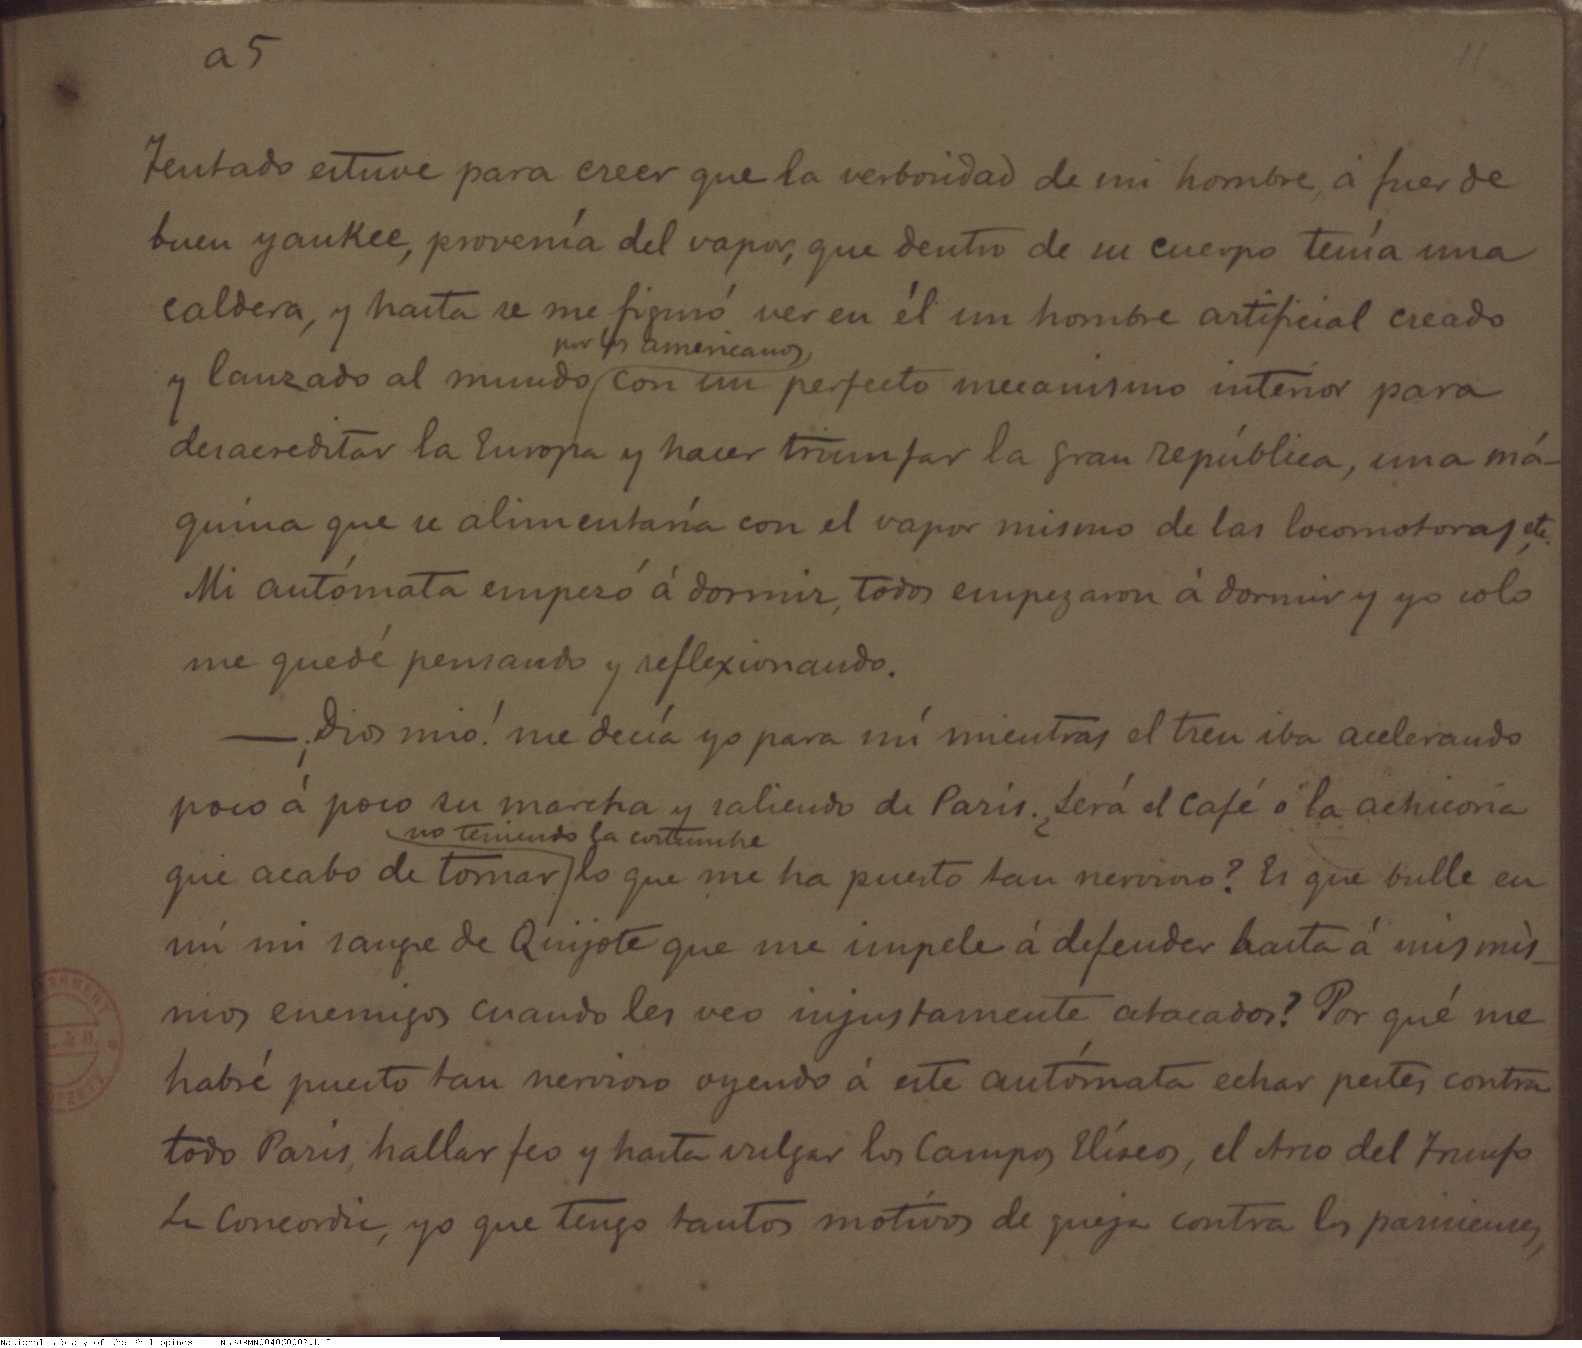 a 5
11
Tentado estuve para creer que la verbosidad de mi hombre, á fuer de
buen yankee, provenía del vapor, que dentro de su cuerpo tenía una
caldera, y hasta se me figuró ver en él un hombre artificial creado
por los americanos,
y lanzado al mundo con un perfecto mecanismo interior para
desacreditar la Europa y hacer triunfar la gran República, una má-
quina que se alimentaría con el vapor mismo de las locomotoras, etc.
Mi autómata empezó á dormir, todos empezaron á dormir y yo solo
me quedé pensando y reflexionando.
—¡Dios mio! me decía yo para mí mientras el tren iba acelerando
poco á poco su marcha y saliendo de París. ¿Será el café ó la achicoria
no teniendo la costumbre
que acabo de tomar, lo que me ha puesto tan nervioso? Es que bulle en
mí mi sangre de Quijote que me impele á defender hasta á mis mis-
mos enemigos cuando les veo injustamente atacados? Por qué me
habré puesto tan nervioso oyendo á este autómata echar pestes contra
todo París, hallar feo y hasta vulgar los Campos Elíseos, el Arco del Triunfo
La Concordia, yo que tengo tantos motivos de queja contra los parisienses,
National Library of the Philippines